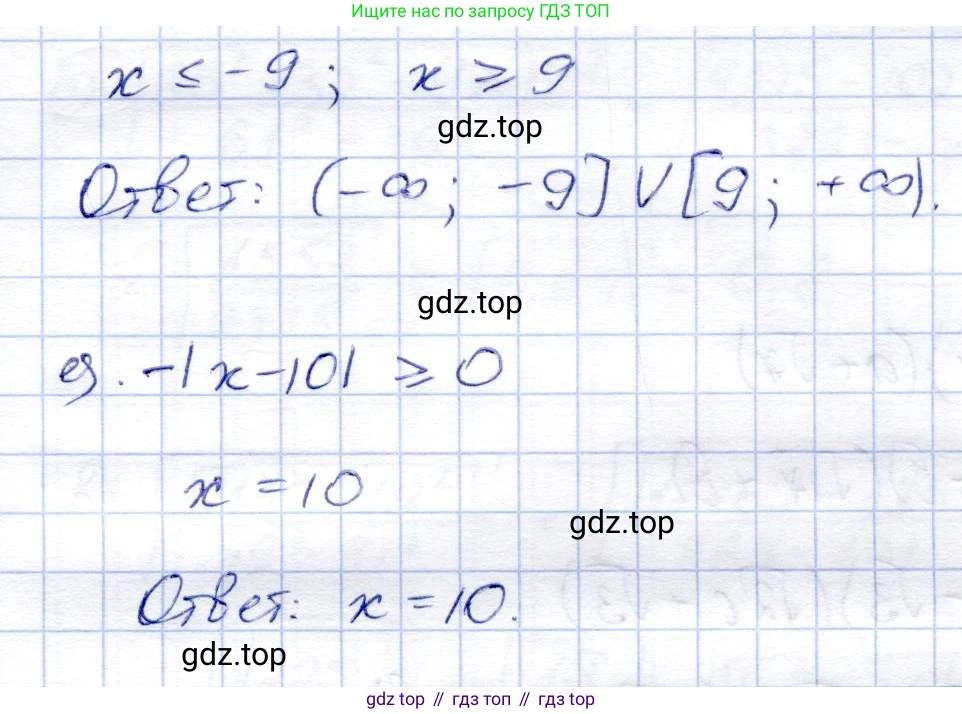 Ищите нас по запросу ГДЗ ТОП
x ≤ -9; x ≥ 9
gdz.top
Ответ: (-∞; -9] ∪ [9; +∞).
gdz.top
е). -|x-10| ≥ 0
x = 10
gdz.top
Ответ: x = 10.
gdz.top
gdz top // гдз топ // гдз top